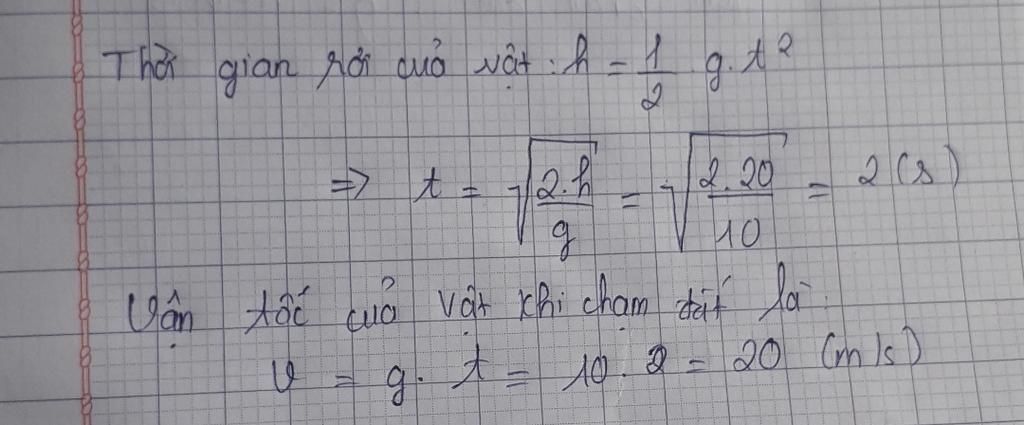 Thời gian rơi của vật: h = 1/2 g.t²
=> t = √(2.h/g) = √(2.20/10) = 2 (s)
Vận tốc của vật khi chạm đất là:
v = g. t = 10. 2 = 20 (m/s)